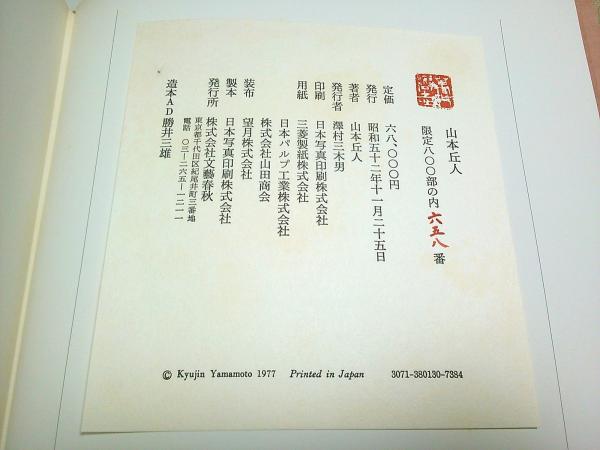 山本丘人
限定八〇〇部の内 六五八 番
定価 六八、〇〇〇円
発行 昭和五十二年十一月二十五日
著者 山本丘人
発行者 澤村三木男
印刷 日本写真印刷株式会社
用紙 三菱製紙株式会社
日本パルプ工業株式会社
株式会社山田商会
装布 望月株式会社
製本 日本写真印刷株式会社
発行所 株式会社文藝春秋
東京都千代田区紀尾井町三番地
電話 〇三―二六五―一二一一
造本AD 勝井三雄
© Kyujin Yamamoto 1977 Printed in Japan 3071-380130-7384